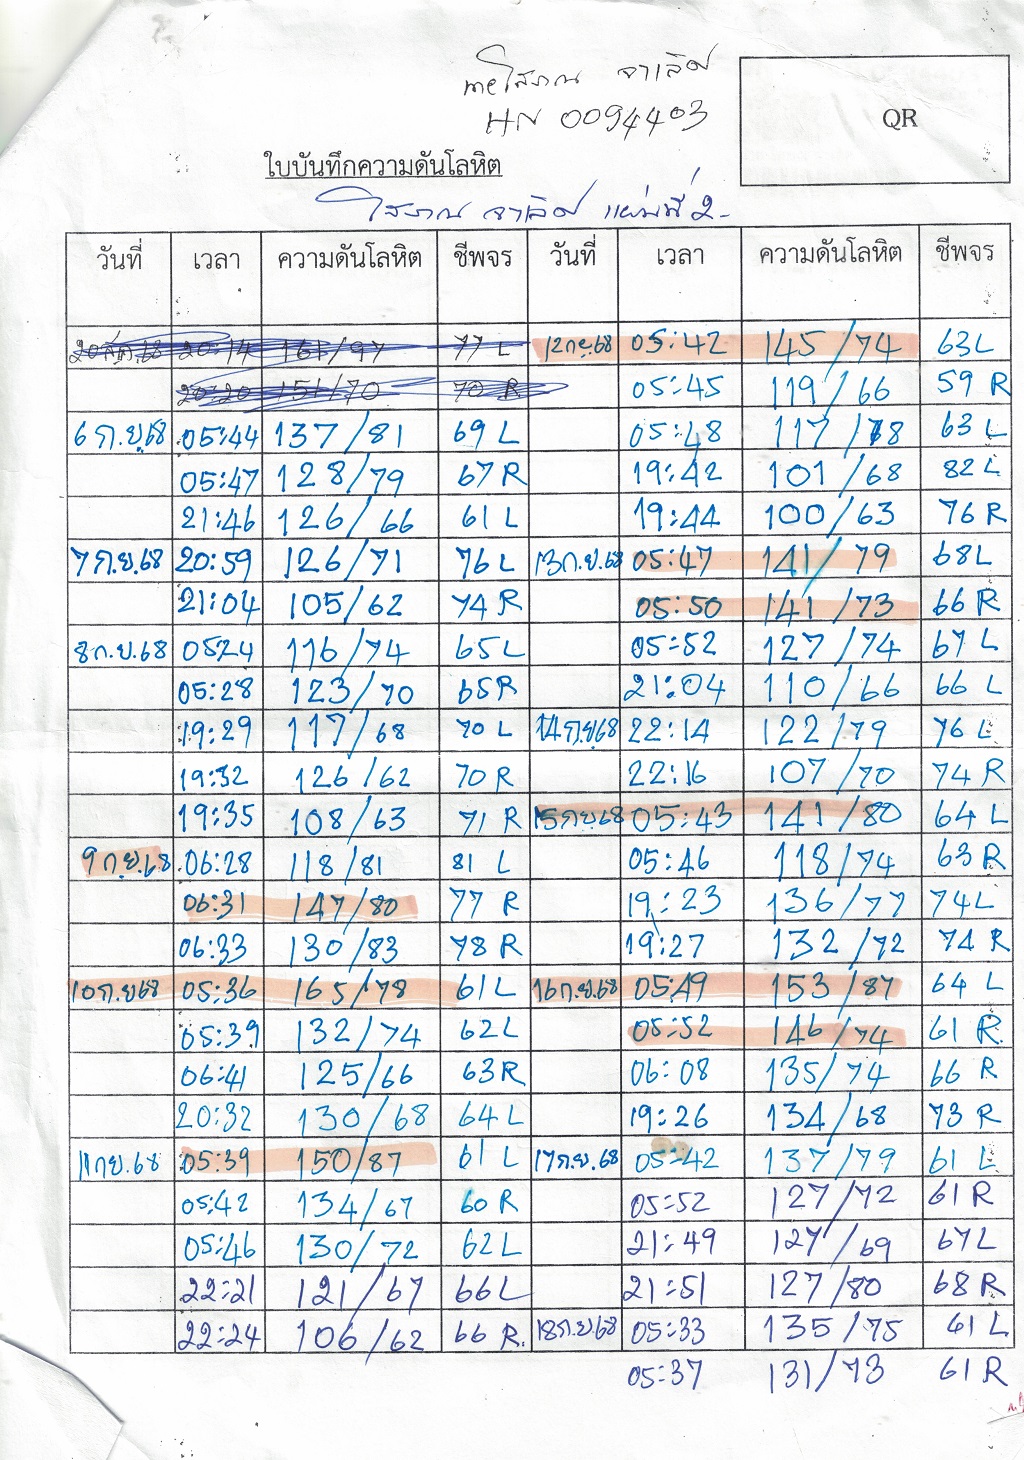 HN 0094403
QR
ใบบันทึกความดันโลหิต
โสภณ จาเลิศ แผ่นที่ 2-
วันที่ เวลา ความดันโลหิต ชีพจร วันที่ เวลา ความดันโลหิต ชีพจร
20 ส.ค. 68 20:14 161/97 77 L 12 ก.ย. 68 05:42 145/74 63 L
20:20 151/70 70 R 05:45 119/66 59 R
6 ก.ย. 68 05:44 137/81 69 L 05:48 117/78 63 L
05:47 128/79 67 R 19:42 101/68 82 L
21:46 126/66 61 L 19:44 100/63 76 R
7 ก.ย. 68 20:59 126/71 76 L 13 ก.ย. 68 05:47 141/79 68 L
21:04 105/62 74 R 05:50 141/73 66 R
8 ก.ย. 68 05:24 116/74 65 L 05:52 127/74 67 L
05:28 123/70 65 R 21:04 110/66 66 L
19:29 117/68 70 L 14 ก.ย. 68 22:14 122/79 76 L
19:32 126/62 70 R 22:16 107/70 74 R
19:35 108/63 71 R 15 ก.ย. 68 05:43 141/80 64 L
9 ก.ย. 68 06:28 118/81 81 L 05:46 118/74 63 R
06:31 147/80 77 R 19:23 136/77 74 L
06:33 130/83 78 R 19:27 132/72 74 R
10 ก.ย. 68 05:36 165/78 61 L 16 ก.ย. 68 05:49 153/87 64 L
05:39 132/74 62 L 05:52 146/74 61 R
06:41 125/66 63 R 06:08 135/74 66 R
20:32 130/68 64 L 19:26 134/68 73 R
11 ก.ย. 68 05:39 150/87 61 L 17 ก.ย. 68 05:42 137/79 61 L
05:42 134/67 60 R 05:52 127/72 61 R
05:46 130/72 62 L 21:49 127/69 67 L
22:21 121/67 66 L 21:51 127/80 68 R
22:24 106/62 66 R. 18 ก.ย. 68 05:33 135/75 61 L
05:37 131/73 61 R